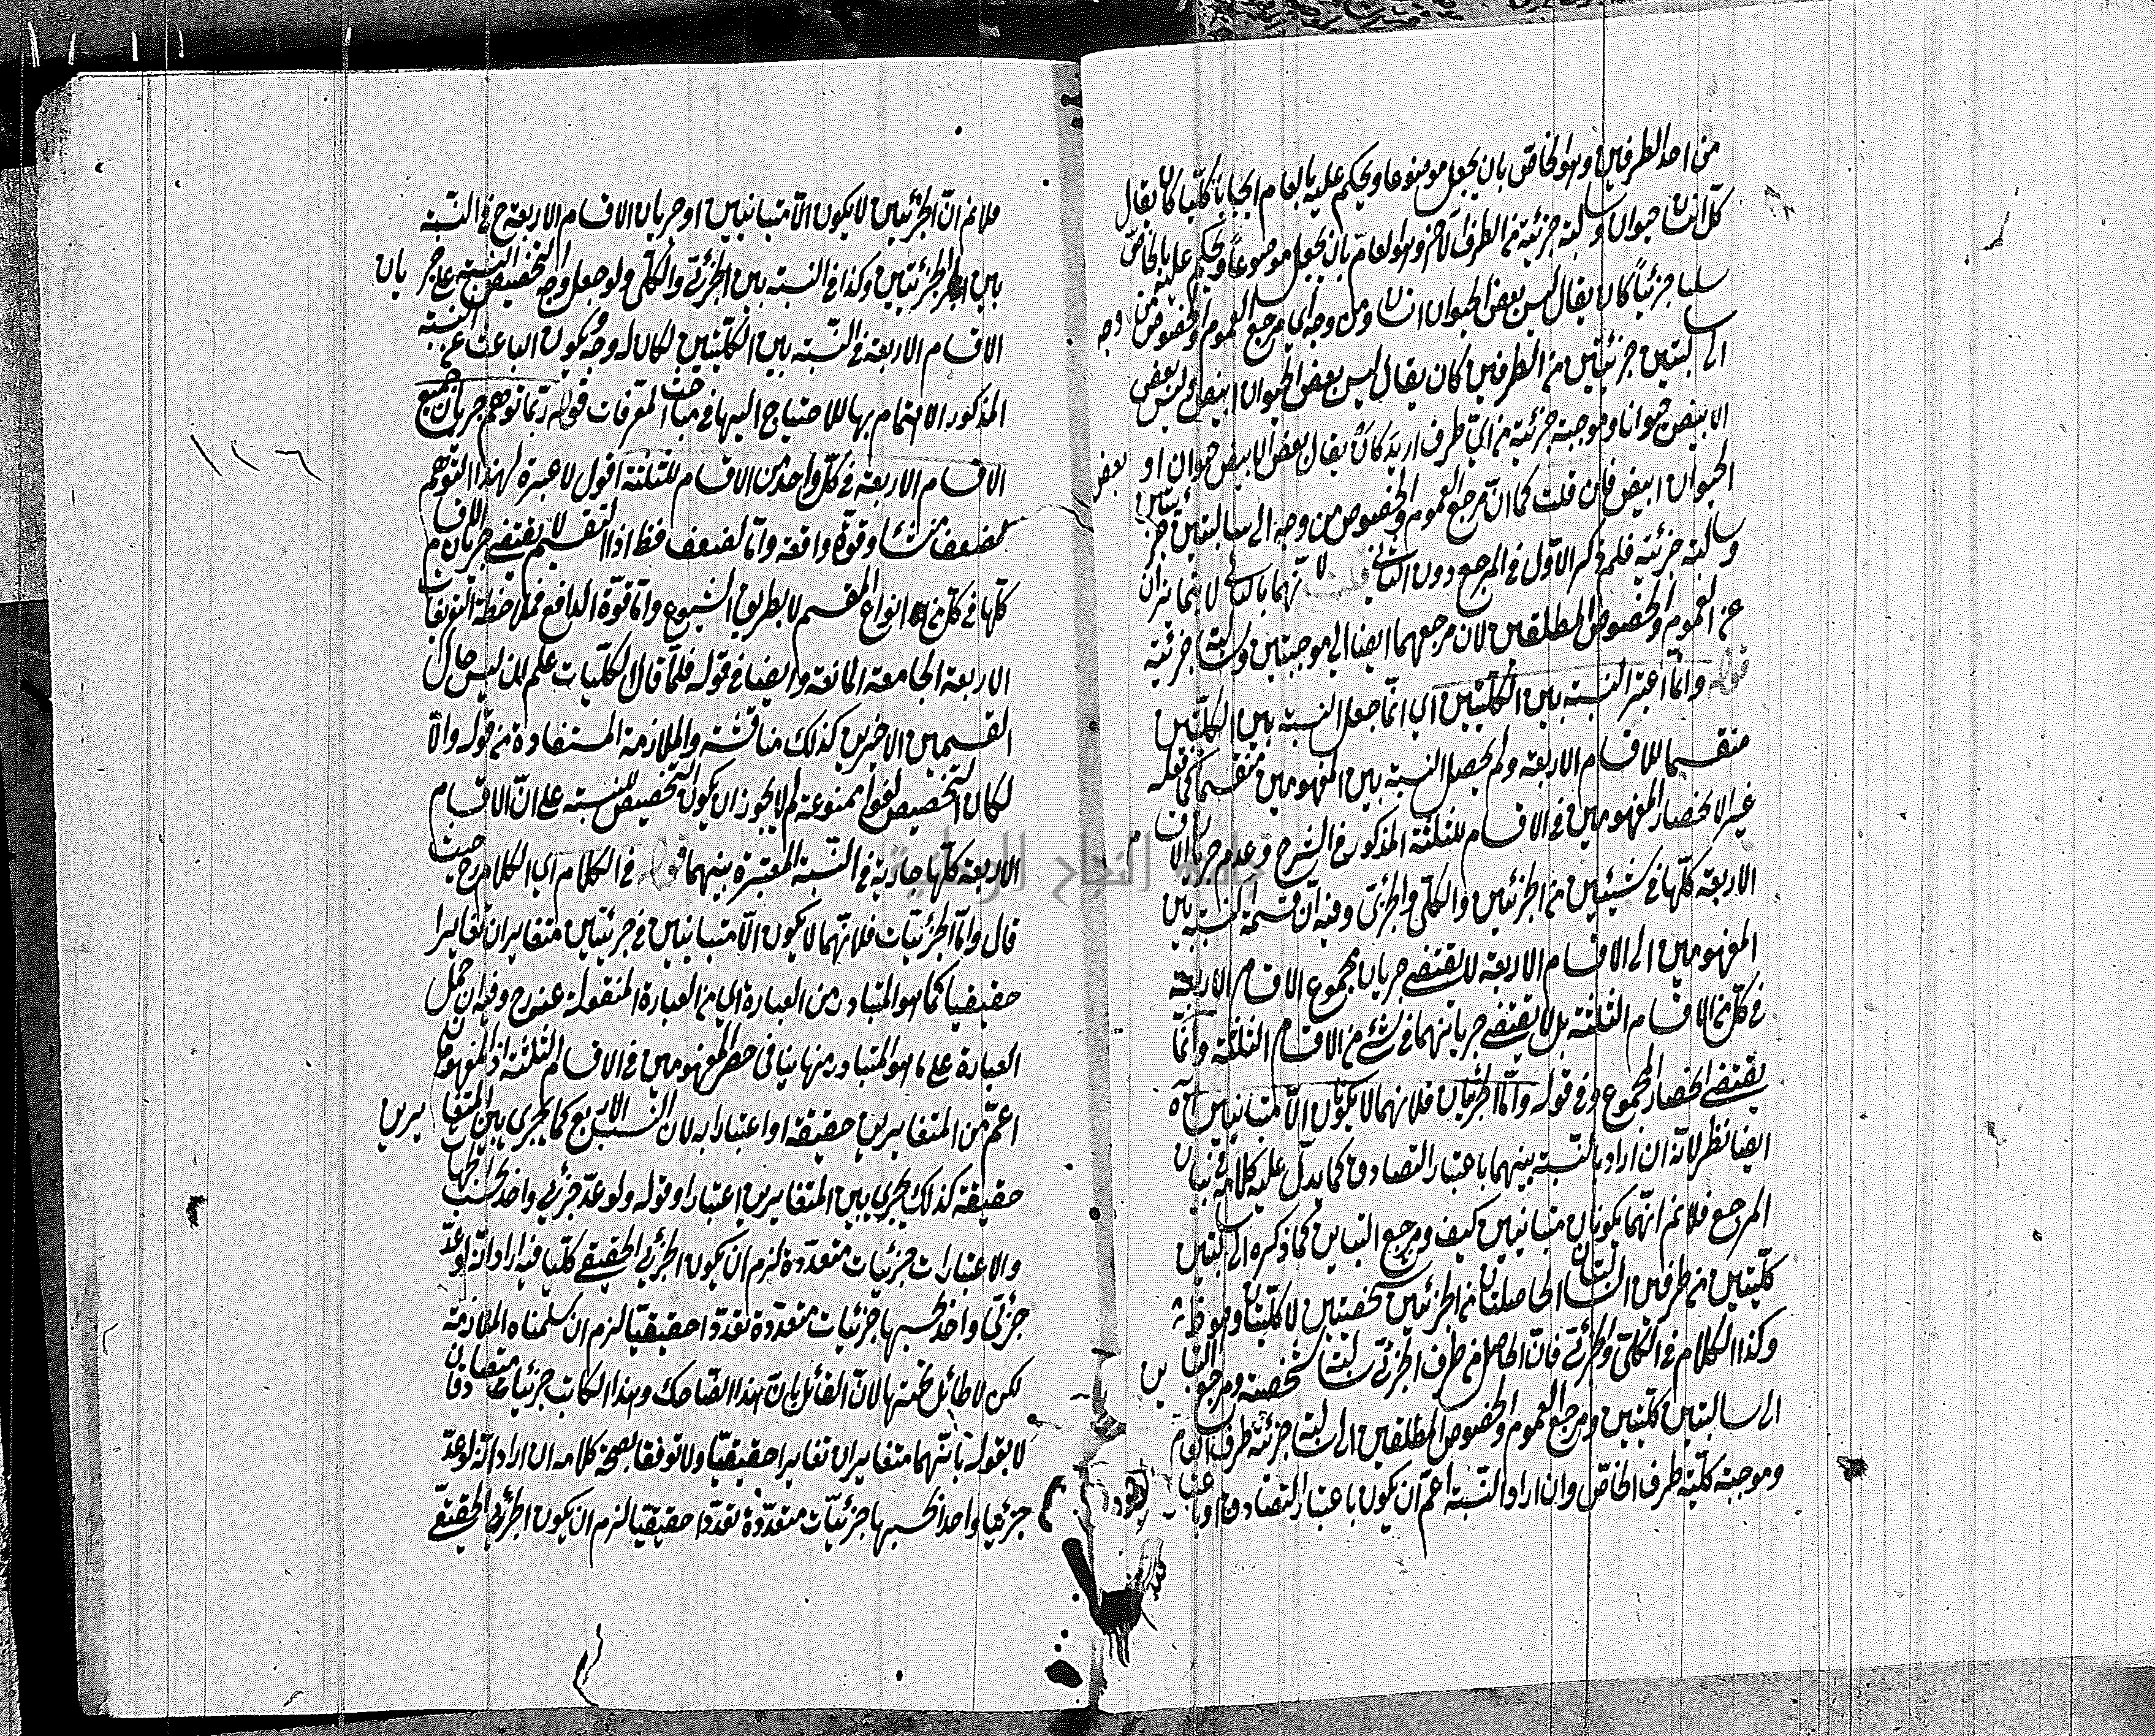 من احد الطرفين وهو الخاص بان يجعل موضوعا ويحكم عليه بالعام ايجابا كليا كان يقال
كل انسان حيوان وسالبة جزئية من الطرف الآخر وهو العام بان يجعل موضوعا ويحكم عليه بالخاص
سلبا جزئيا كان يقال ليس بعض الحيوان انسان ومن وجه اي مرجع العموم والخصوص من وجه
الى سالبتين جزئيتين من الطرفين كان يقال ليس بعض الحيوان ابيض وليس بعض
الابيض حيوانا وموجبة جزئية من اي طرف اريد كان يقال بعض الابيض حيوان او بعض
الحيوان ابيض فان قلت كما ان مرجع العموم والخصوص من وجه الى سالبتين جزئيتين
وسالبة جزئية فلم ذكر الاول في المرجع دون الثاني قلت لانهما بالثاني لا يمتازان
عن العموم والخصوص المطلقين لان مرجعهما ايضا الى موجبتين وسالبة جزئية
قوله وانما اعتبر النسبة بين الكليتين اي انما جعل النسبة بين الكليتين
منقسما للاقسام الاربعة ولم يحصل النسبة بين المفهومين منقسما كما فعله
غيره لانحصار المفهومين في الاقسام الثلثة المذكورة في الشرح وعدم جريان الاقسام
الاربعة كلها في شيئين من الجزئيين والكلي والجزئي وفيه ان قسمة النسبة بين
المفهومين الى الاقسام الاربعة لا يقتضي جريان مجموع الاقسام الاربعة
في كل من الاقسام الثلثة بل لا يقتضي جريانهما في شئ من الاقسام الثلثة وانما
يقتضي انحصار المجموع وفي قوله واما الجزئيان فلانهما لا يكونان الا متباينين آه
ايضا نظر لانه ان اراد بالنسبة بينهما باعتبار التصادق كما يدل عليه كلامه في بيان
المرجع فلانم انهما يكونان متباينين كيف ومرجع التباين كما ذكره الى سالبتين
كليتين من طرفين السالبتان الحاصلتان من الجزئيين شخصيتين لا كليتان وهو ظ
وكذا الكلام في الكلي والجزئي فان الحاصل من طرف الجزئي سالبة شخصية ومرجع التباين
الى سالبتين كليتين ومرجع العموم والخصوص المطلقين الى سالبة جزئية طرف العام
وموجبة كلية طرف الخاص وان اراد النسبة اعم ان يكون باعتبار التصادق او
فلانم ان الجزئيين لا يكون الا متباينين او جريان الاقسام الاربعة ح في النسبة
بين الجزئيتين وكذا في النسبة بين الجزئي والكلي ولو جعل وجه التخصيص النسبة على جريان
الاقسام الاربعة في النسبة بين الكليتين لكان له وجه ويكون الباعث على النسبة
المذكور الاهتمام بها للاحتياج اليها في مباحث المعرفات قوله ربما توهم جريان جميع
الاقسام الاربعة في كل واحد من الاقسام الثلثة اقول لا عبرة لهذا التوهم
لضعف منشاء وقوة دافعه واما لضعف فظ اذ التقسيم لا يقتضي جريان الاقسام
كلها في كل من انواع المقسم لا بطريق الشيوع واما قوة الدافع فملاحظة التعريفات
الاربعة الجامعة المانعة وايضا في قوله فلما قال الكليات علم ان ليس حال
القسمين الاخيرين كذلك مناقشة والملازمة المستفادة من قوله والا
لكان التخصيص لغوا ممنوعة لم لا يجوز ان يكون التخصيص للنسبة على ان الاقسام
الاربعة كلها جارية في النسبة المعتبرة بينهما قوله في الكلام اي الكلام ح حيث
قال واما الجزئيات فلانهما لا يكون الا متباينين في جزئيين متغايران تغايرا
حقيقيا كما هو المتبادر من العبارة اي من العبارة المنقولة عنه ح وفيه ان حمل
العبارة على ما هو المتبادر منها ينافي حصر المفهومين في الاقسام الثلثة اذ المفهومان
اعم من المتغايرين حقيقة او اعتبارا به لان النسب الاربع كما يجري بين المتغايرين
حقيقة كذلك يجري بين المتغايرين اعتبارا وقوله ولو عد جزئي واحد بحسب الجهات
والاعتبارات جزئيات متعددة لزم ان يكون الجزئي الحقيقي كليا فيه اراد انه لو عد
جزئي واحد بحسبها جزئيات متعددة تعددا حقيقيا لزم ان سلمناه الملازمة
لكن لا طائل تحتها لان القائل بان هذا الضاحك وهذا الكاتب جزئيات متصادقان
لا يقوله بانهما متغايران تغايرا حقيقيا ولا توقف بصحة كلامه ان اراد انه لو عد
جزئيا واحدا بحسبها جزئيات متعددة تعددا حقيقيا لزم ان يكون الجزئي الحقيقي
١٢٦
جامعة النجاح الوطنية